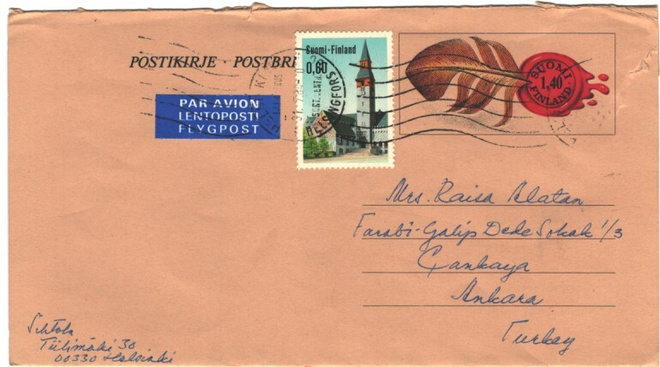 POSTIKIRJE · POSTBR
PAR AVION
LENTOPOSTI
FLYGPOST
Suomi-Finland
0,60
HELSINGFORS
SUOMI
1,40
FINLAND
Mrs. Raisa Alatan
Farabi-Galip Dede Sokak 1/3
Çankaya
Ankara
Turkey
Tiilimäki 30
00330 Helsinki